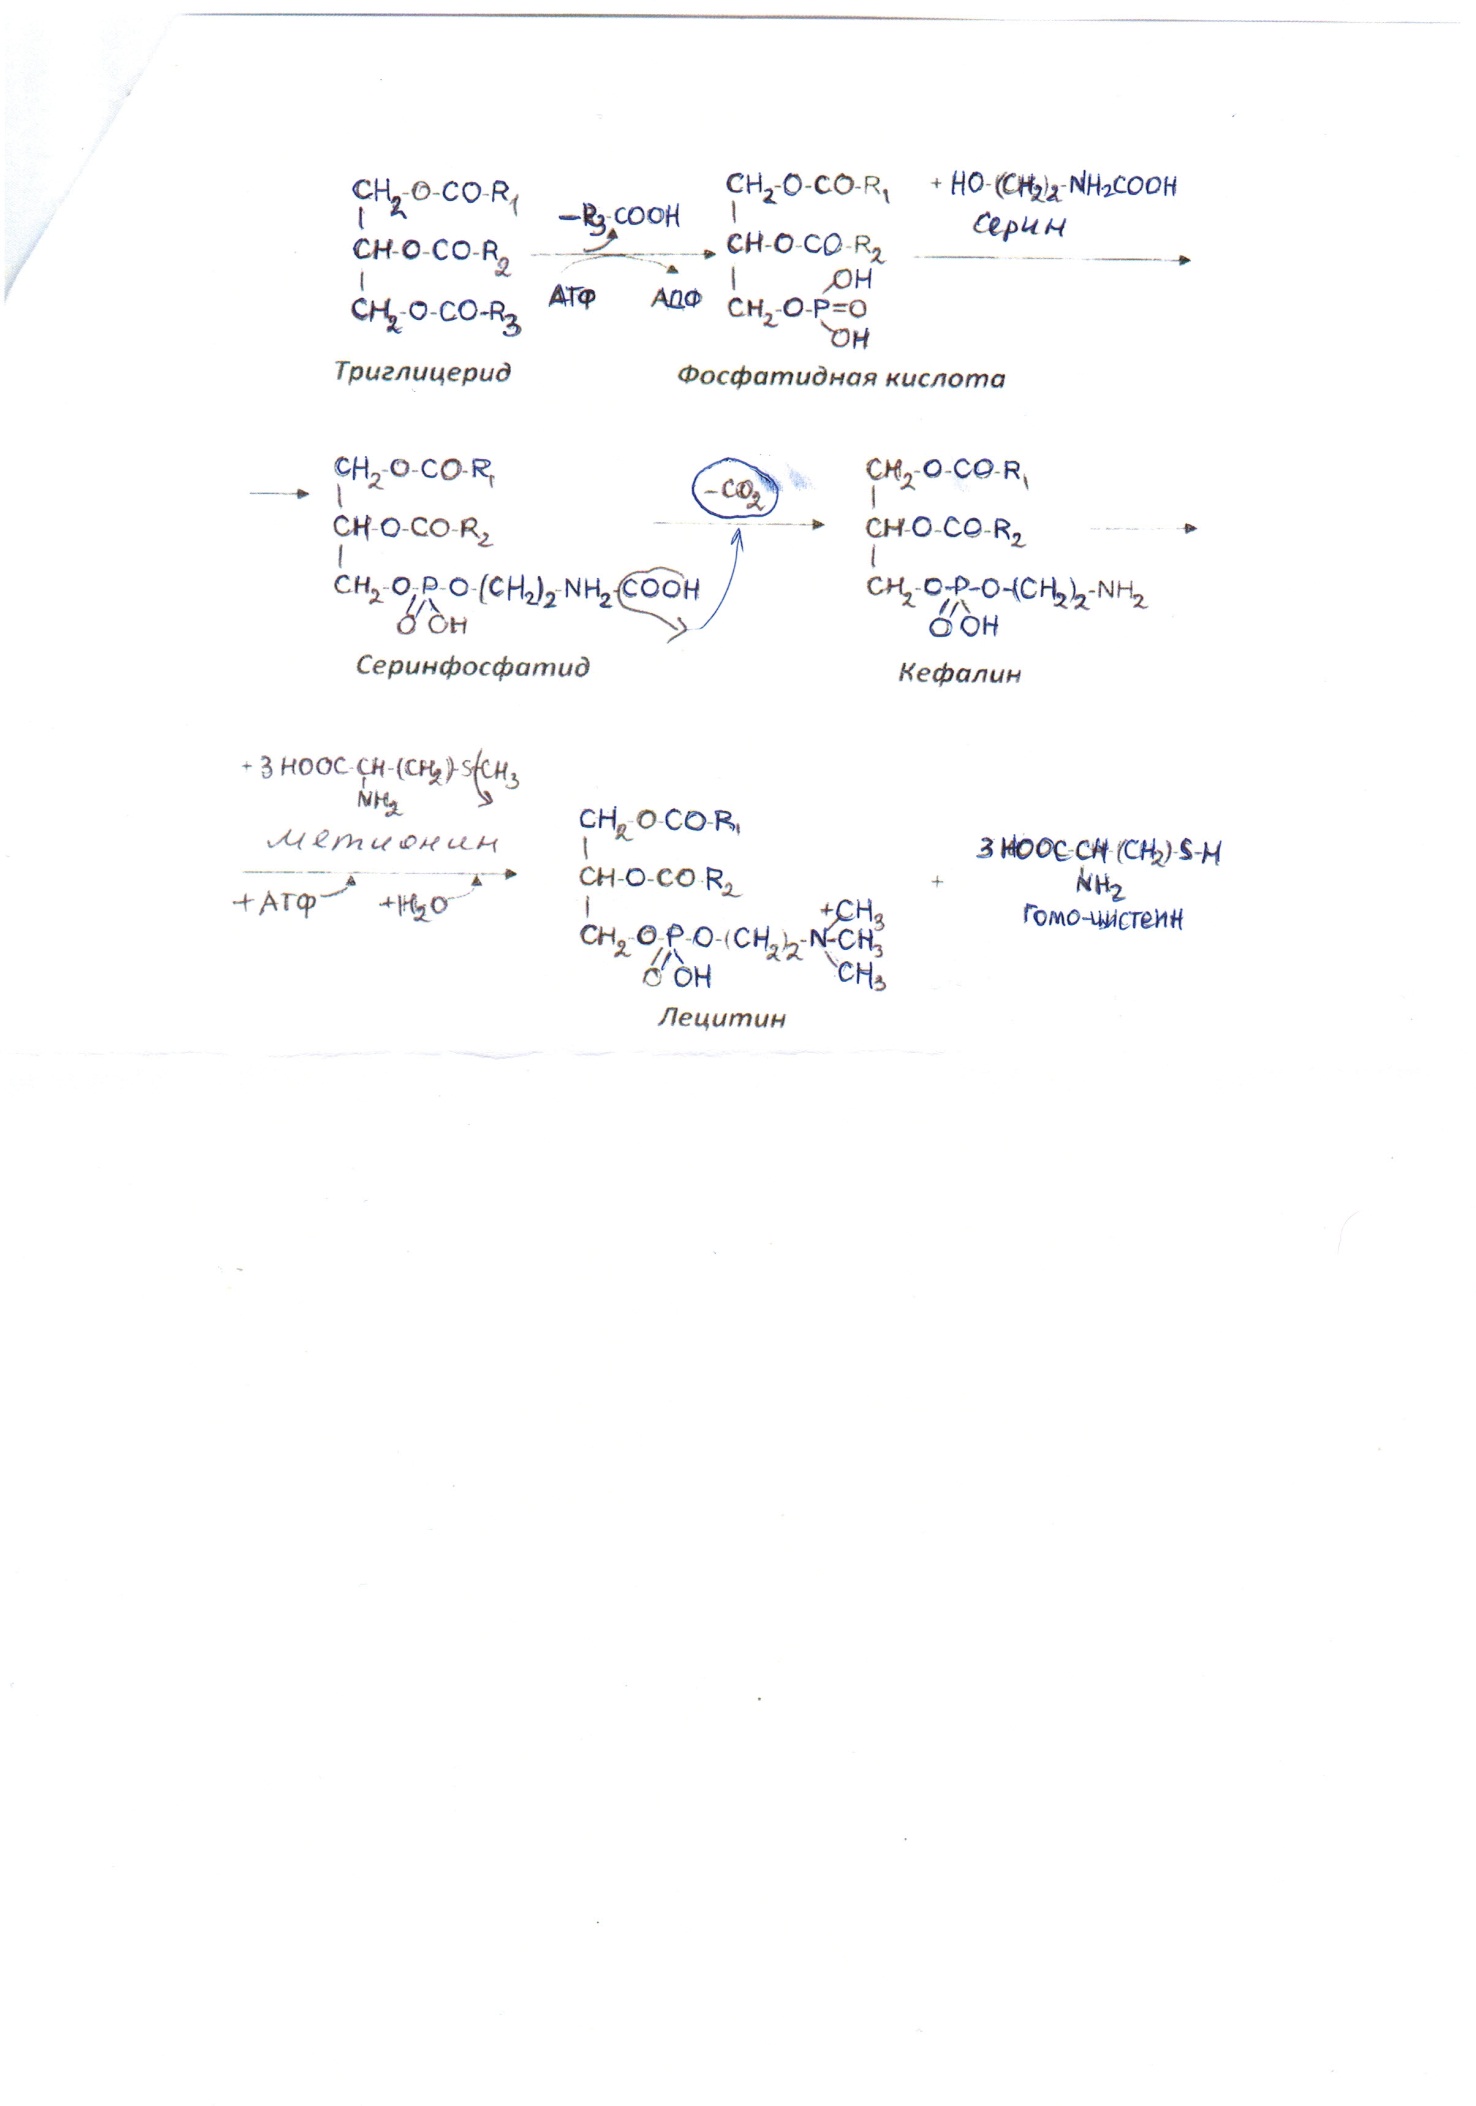 CH₂-O-CO-R₁
CH-O-CO-R₂
CH₂-O-CO-R₃
Триглицерид
-R₃-COOH
АТФ АДФ
CH₂-O-CO-R₁
CH-O-CO-R₂
OH
CH₂-O-P=O
OH
Фосфатидная кислота
+ HO-(CH₂)₂-NH₂COOH
Серин
CH₂-O-CO-R₁
CH-O-CO-R₂
CH₂-O-P-O-(CH₂)₂-NH₂-COOH
O OH
Серинфосфатид
-CO₂
CH₂-O-CO-R₁
CH-O-CO-R₂
CH₂-O-P-O-(CH₂)₂-NH₂
O OH
Кефалин
+ 3 HOOC-CH-(CH₂)-S-CH₃
NH₂
Метионин
+АТФ +H₂O
CH₂-O-CO-R₁
CH-O-CO-R₂
+CH₃
CH₂-O-P-O-(CH₂)₂-N-CH₃
O OH CH₃
Лецитин
+
3 HOOC-CH-(CH₂)-S-H
NH₂
Гомо-цистеин